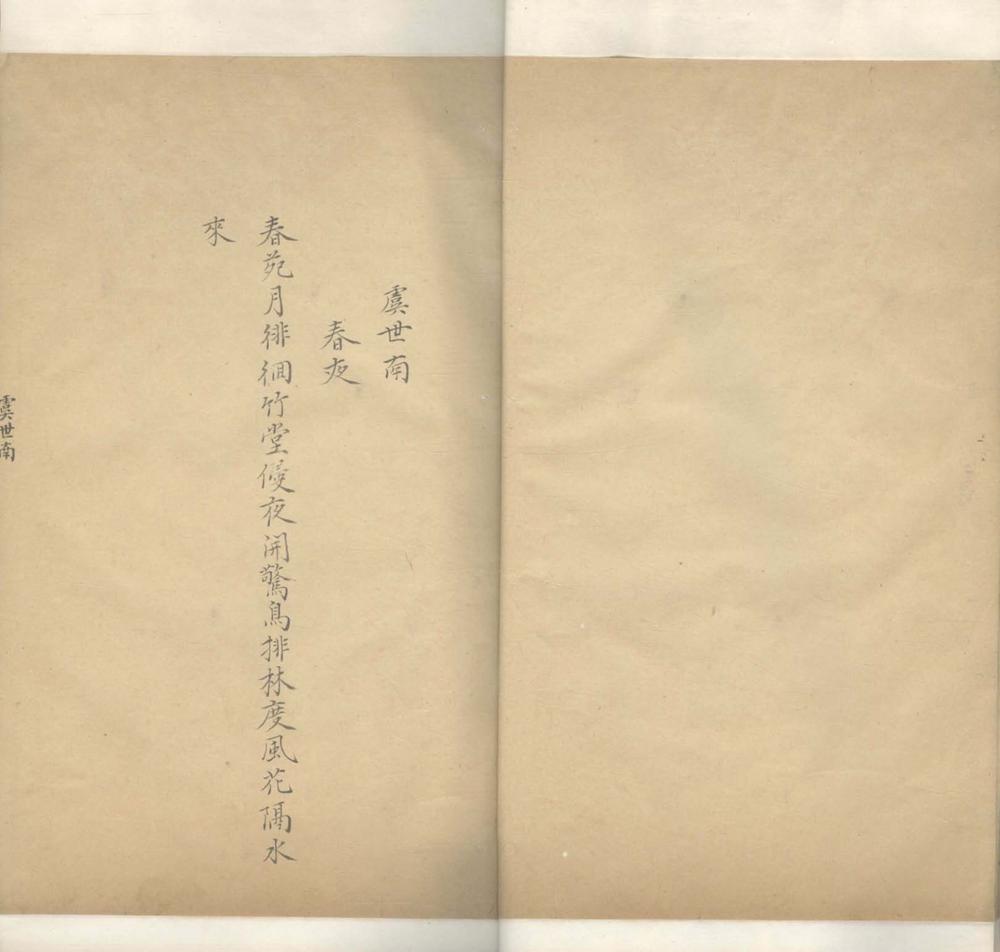 虞世南
春夜
春苑月徘徊竹堂侵夜開驚鳥排林度風花隔水
來
虞世南